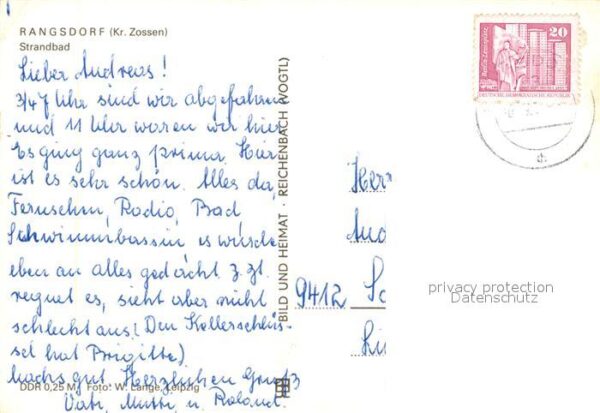 RANGSDORF (Kr. Zossen)
Strandbad
Lieber Andreas!
3/47 Uhr sind wir abgefahren
und 11 Uhr waren wir hier
Es ging ganz prima. Hier
ist es sehr schön. Alles da,
Fernsehen, Radio, Bad
Schwimmbassin es wurde
eben an alles gedacht. z. Zt.
regnet es, sieht aber nicht
schlecht aus! Den Kellerschlüs-
sel hat Brigitte)
machs gut Herzlichen Gruß
Vati, Mutti u. Roland.
DDR 0,25 M Foto: W. Lange, Leipzig
BILD UND HEIMAT · REICHENBACH (VOGTL)
Berlin-Leninplatz
20
DEUTSCHE DEMOKRATISCHE REPUBLIK
Herr
And
9412 Sc
privacy protection
Datenschutz